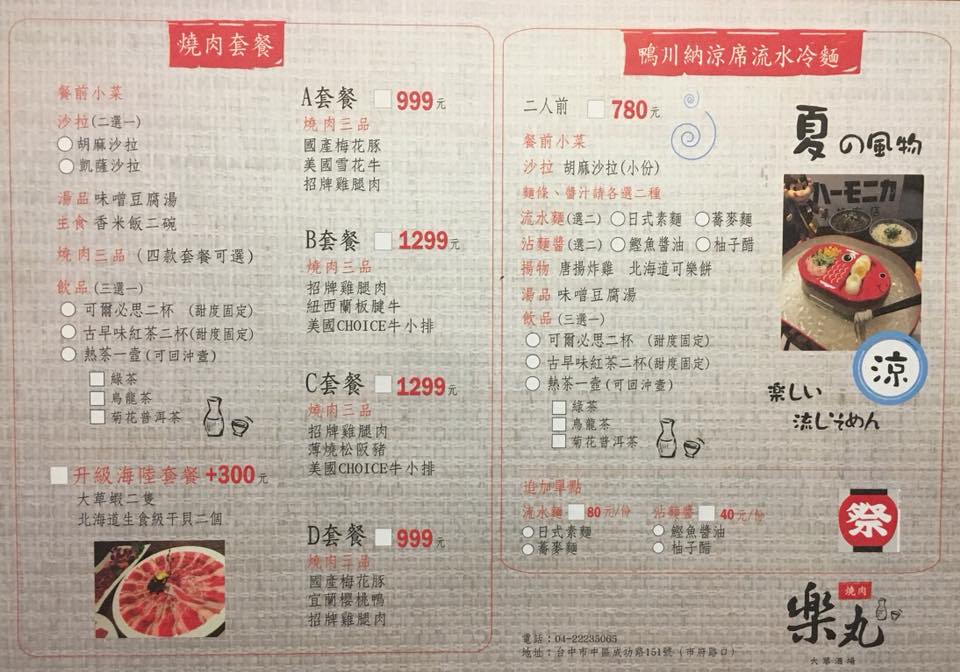 燒肉套餐
餐前小菜
沙拉(二選一)
胡麻沙拉
凱薩沙拉
湯品 味噌豆腐湯
主食 香米飯二碗
燒肉三品(四款套餐可選)
飲品(三選一)
可爾必思二杯 (甜度固定)
古早味紅茶二杯(甜度固定)
熱茶一壺(可回沖壹)
綠茶
烏龍茶
菊花普洱茶
升級海陸套餐 +300元
大草蝦二隻
北海道生食級干貝二個
A套餐 999元
燒肉三品
國產梅花豚
美國雪花牛
招牌雞腿肉
B套餐 1299元
燒肉三品
招牌雞腿肉
紐西蘭板腱牛
美國CHOICE牛小排
C套餐 1299元
燒肉三品
招牌雞腿肉
薄燒松阪豬
美國CHOICE牛小排
D套餐 999元
燒肉三品
國產梅花豚
宜蘭櫻桃鴨
招牌雞腿肉
鴨川納涼席流水冷麵
二人前 780元
餐前小菜
沙拉 胡麻沙拉(小份)
麵條、醬汁請各選二種
流水麵(選二) 日式素麵 蕎麥麵
沾麵醬(選二) 鰹魚醬油 柚子醋
揚物 唐揚炸雞 北海道可樂餅
湯品 味噌豆腐湯
飲品(三選一)
可爾必思二杯 (甜度固定)
古早味紅茶二杯(甜度固定)
熱茶一壺(可回沖壹)
綠茶
烏龍茶
菊花普洱茶
追加單點
流水麵 80元/份 沾麵醬 40元/份
日式素麵 鰹魚醬油
蕎麥麵 柚子醋
夏の風物
ハーモニカ
涼
楽しい
流しそめん
祭
燒肉
楽丸
大眾酒場
電話：04-22235065
地址：台中市中區成功路151號（市府路口）